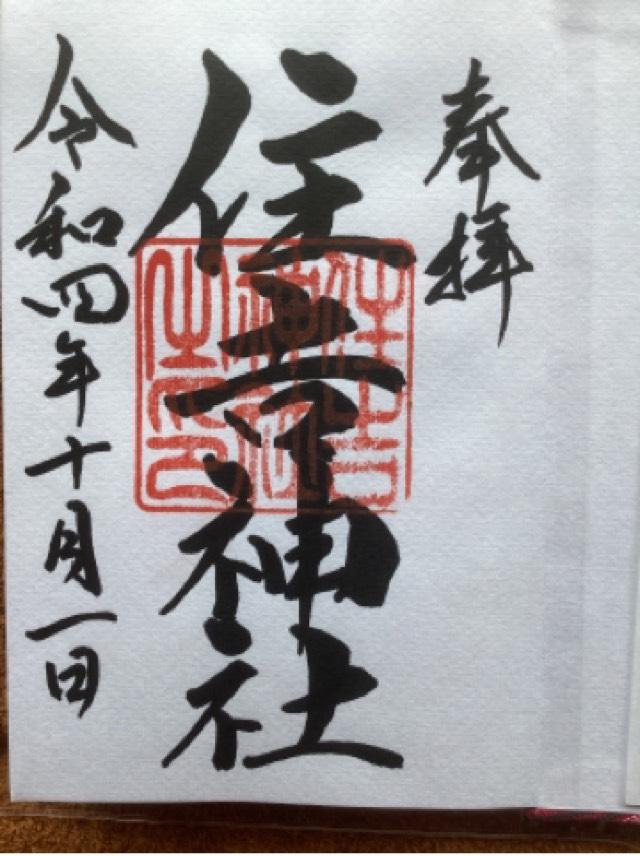 奉拝
住吉神社
住吉神社之印
令和四年十月一日